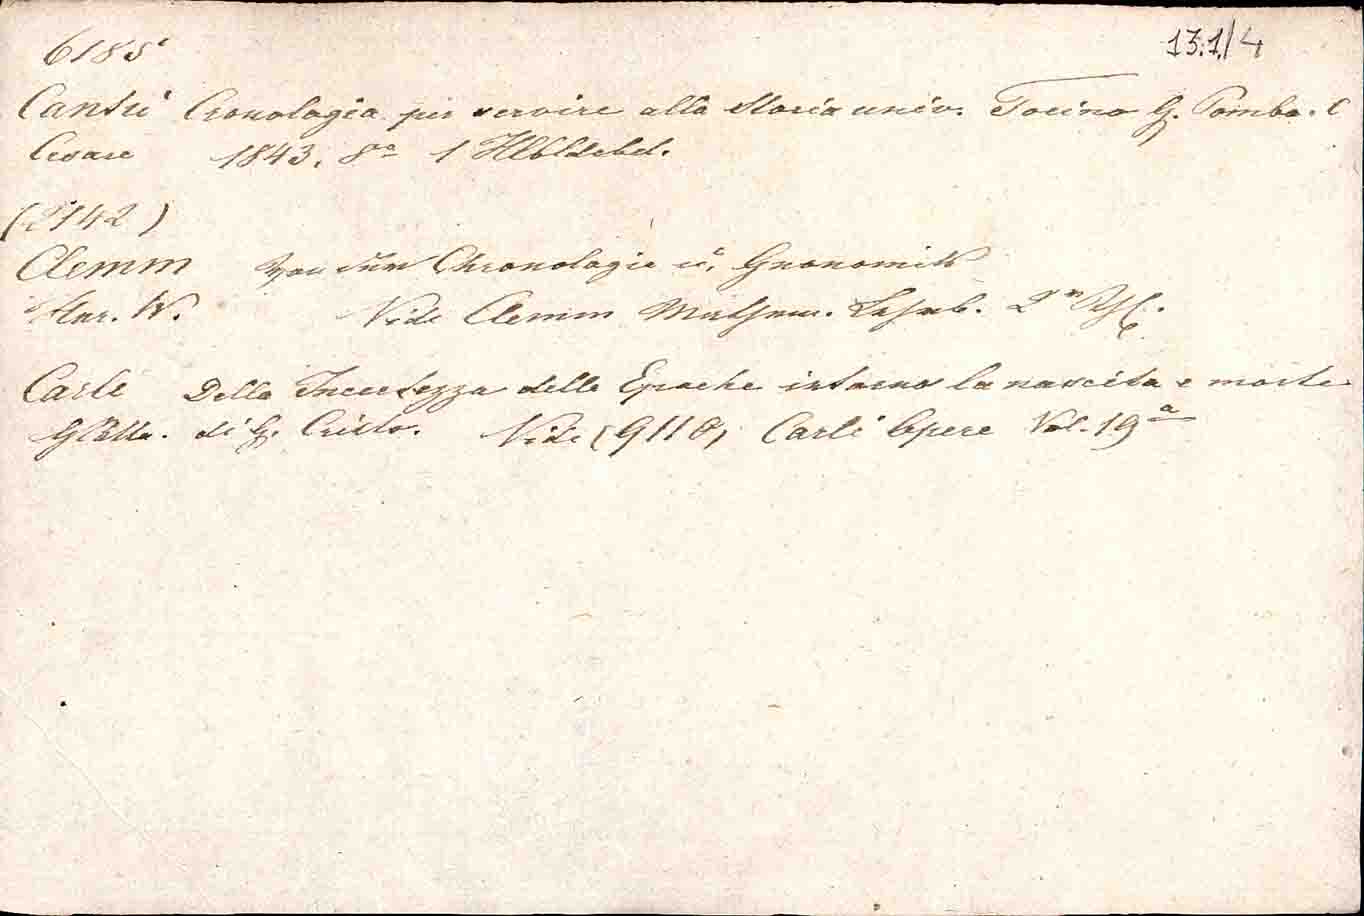 13.1/4
6185
Cantù Cronologia per servire alla Storia univ. Torino G. Pomba. C
Cesare 1843. 8vo 1 Hlbldrbd.
(2142)
Clemm von der Chronologie u. Gnonomik
Hnr. W. Vide Clemm Mathem. Lehrb. 2n Thl.
Carli Della Incertezza delle Epoche intorno la nascita e morte
GRetta. di G. Cristo. Vide (9110) Carli Opere Vol. 19a